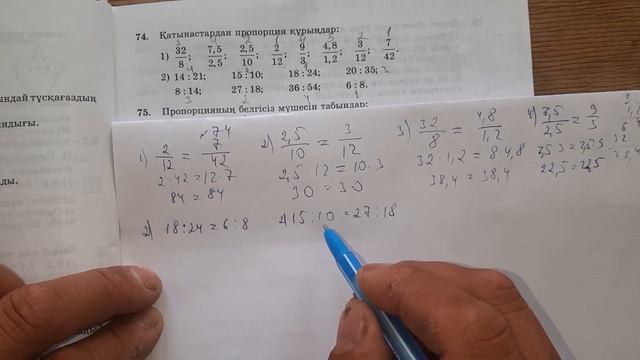 74. Қатынастардан пропорция құрыңдар:
1) 32/8; 7,5/2,5; 2,5/10; 2/12; 9/3; 4,8/1,2; 3/12; 7/42.
2) 14 : 21; 15 : 10; 18 : 24; 20 : 35;
8 : 14; 27 : 18; 36 : 54; 6 : 8.
75. Пропорцияның белгісіз мүшесін табыңдар:
ындай тұсқағаздың
ындығы.
ды.
№74
1) 2/12 = 7/42
2·42=12·7
84 = 84
2) 2,5/10 = 3/12
2,5·12=10·3
30=30
3) 32/8 = 4,8/1,2
32·1,2=8·4,8
38,4=38,4
4) 7,5/2,5 = 9/3
22,5=22,5
2) 18:24=6:8
2) 15:10=27:18